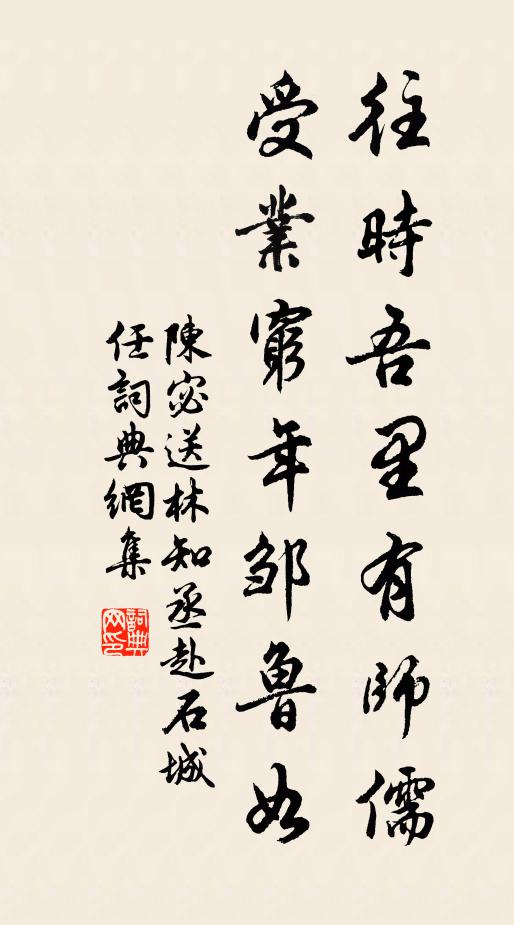 往時吾里有師儒
受業窮年邹魯如
陳宓送林知丞赴石城
任詞典網集
詞典
网印